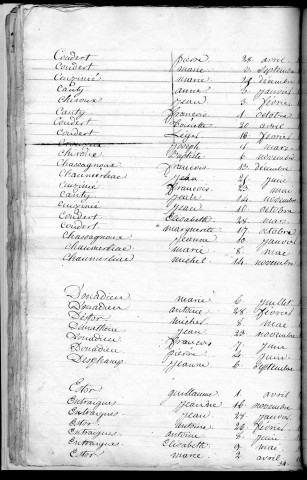 Coudert pierre 28 avril
Coudert marie 21 septembre
marie 28 décembre
Cauty anne 3 janvier
Chiroux jean 3 février
Cauty françois 1 octobre
Coudert 20 avril
Coudert Léger 18 février
joseph 4 mars
Chiroux 6 novembre
Chassagnoux françois 13 décembre
Chaumerliac jean 21 juin
françois 23 mai
Cauty 14 novembre
jean 10 octobre
Coudert Elizabeth 28 mars
Coudert marguerite 17 octobre
Chassagnoux jeanne 10 janvier
Chaumerliac marie 8 mai
Chaumerliac michel 14 novembre
Donadieu marie 6 juillet
Donadieu antoine 28 février
michel 8 mai
jean 23 novembre
Donadieu françois 7 juin
Donadieu pierre 4 juin
Deschamp jeanne 6 septembre
Estor guillaume 1 avril
Entraigues jeanne 16 novembre
Entraigues jean 28 janvier
Estor antoine 26 février
Entraigues antoine 8 juin
Entraigues Elizabeth 9 mai
Estor marie 2 avril